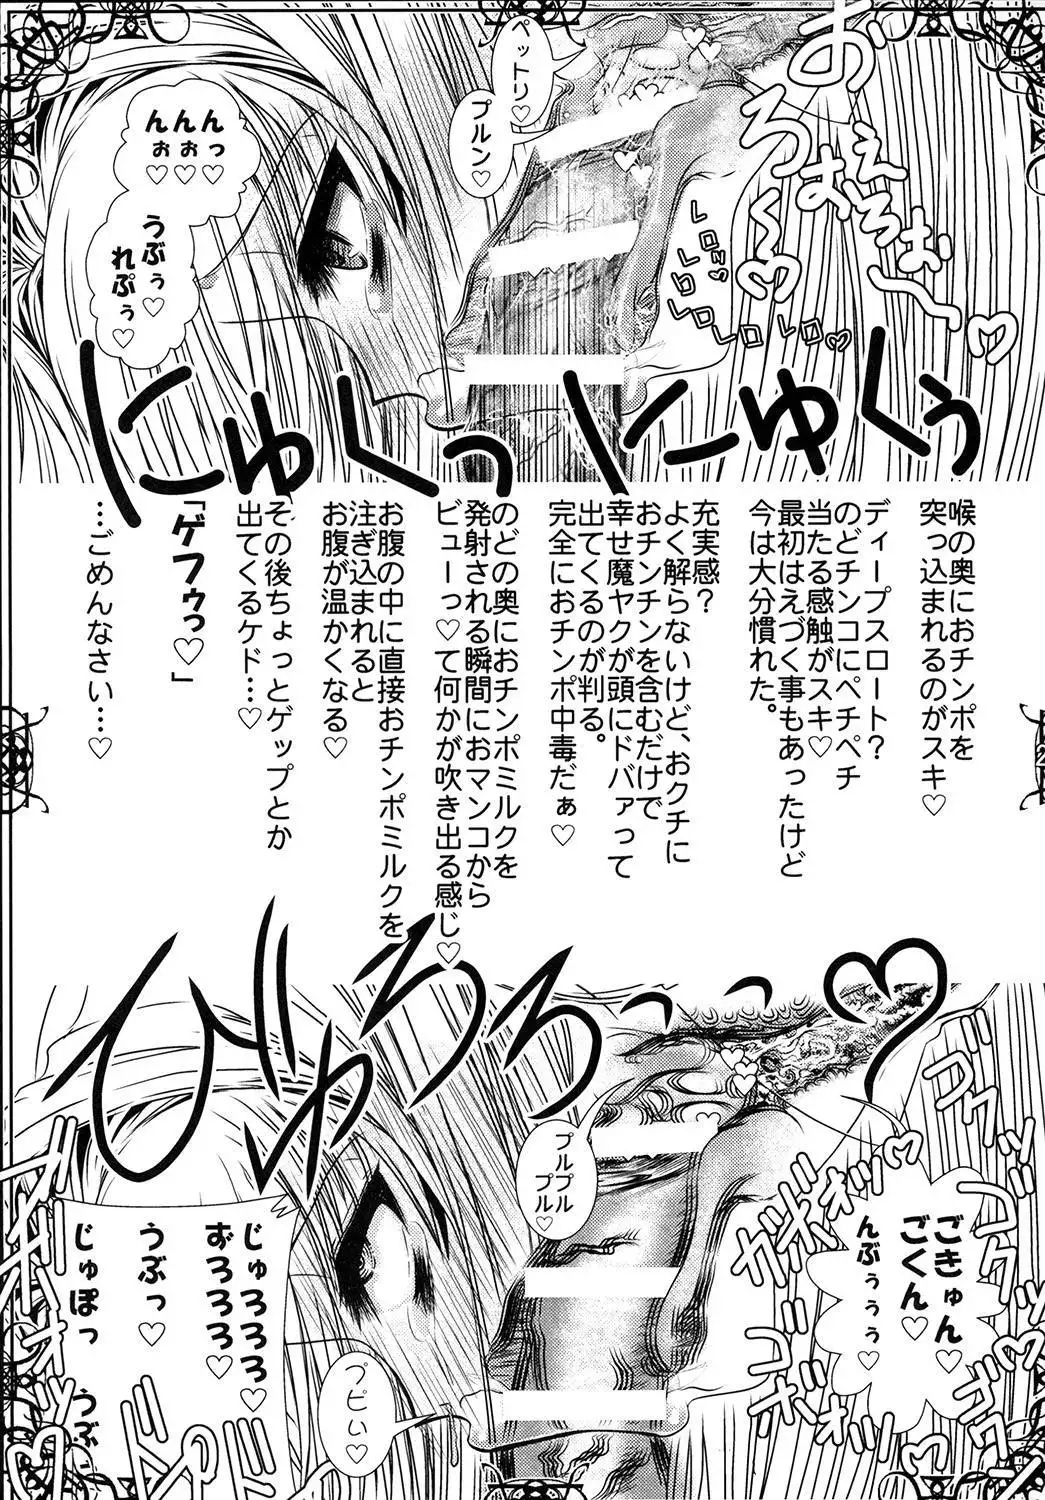 お
ろぉぉ
えろぉ～♡
く♡
ペットリ♡
プルン♡
レロン♡
レロレロレロ
レロ♡
んっ♡
んぉ♡
んぉ♡
うぶぅ♡
れぷぅ♡
にゅくっにゅくぅ
喉の奥におチンポを
突っ込まれるのがスキ♡
ディープスロート?
のどチンコにペチペチ
当たる感触がスキ♡
最初はえづく事もあったけど
今は大分慣れた。
充実感?
よく解らないけど、おクチに
おチンチンを含むだけで
幸せ魔ヤクが頭にドバァって
出てくるのが判る。
完全におチンポ中毒だぁ♡
のどの奥におチンポミルクを
発射される瞬間におマンコから
ビューーっ♡て何かが吹き出る感じ♡
お腹の中に直接おチンポミルクを
注ぎ込まれると
お腹が温かくなる♡
その後ちょっとゲップとか
出てくるケド…♡
「ゲフゥっ♡」
…ごめんなさい…♡
びゅろろろっっ♡
ゴクッ
ゴクッ
ごきゅん♡
ごくん♡
んぶぅぅぅ♡
ガボォッ♡
ゴボォッ
プルプル
プル♡
じゅろろろ♡
ずろろろ♡
うぶっ♡
じゅぽっ
うぶ
プピぃ♡